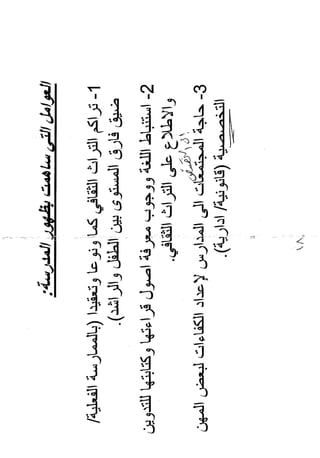 العوامل التي ساهمت بظهور المدرسة:
1- تراكم التراث الثقافي كما ونوعا وتعقيدا (بالممارسة الفعلية/
ضيق فارق المستوى بين الطفل والراشد).
2- استنباط اللغة ووجوب معرفة اصول قراءتها وكتابتها للتدوين
والاطلاع على التراث الثقافي.
3- حاجة المجتمعات الى المدارس لإعداد الكفاءات لبعض المهن
التخصصية (قانونية/ ادارية).
١٨